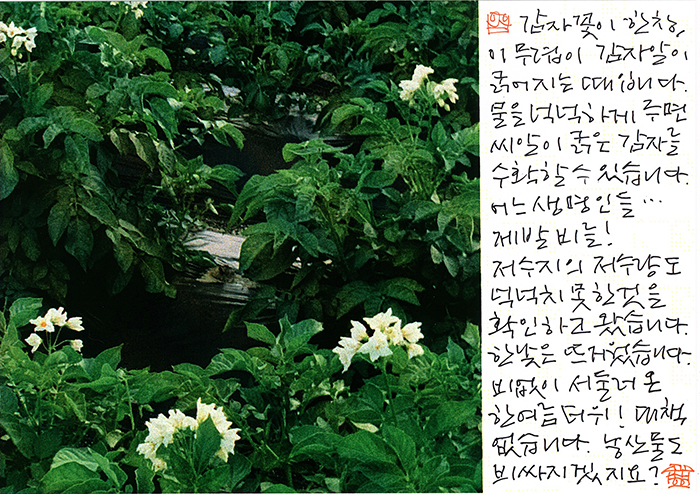 감자꽃이 한창,
이 무렵이 감자알이
굵어지는 때입니다.
물을 넉넉하게 주면
씨알이 굵은 감자를
수확할 수 있습니다.
어느 생명인들…
제발 비를!
저수지의 저수량도
넉넉치 못한 것을
확인하고 왔습니다.
한낮은 뜨거웠습니다.
비없이 서둘러 온
한여름 더위! 대책
없습니다. 농산물도
비싸지겠지요?